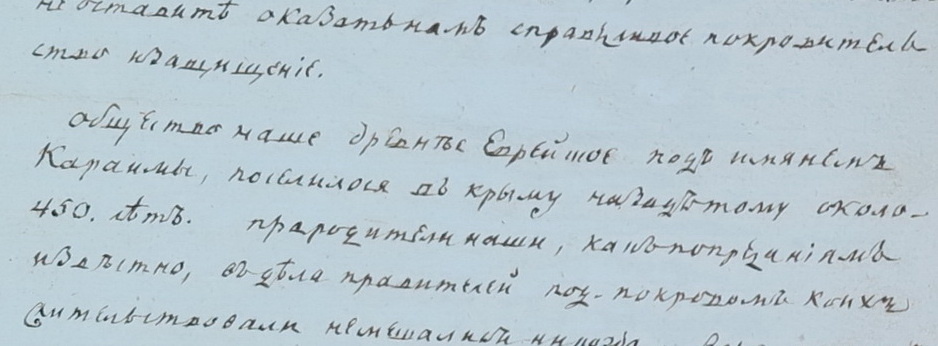 не оставитѣ оказать намъ справедливое покровитель
ство и защищеніе.
Общество наше древнѣе Еврейское подъ имянемъ
Караимы, поселилося въ крыму назадъ тому около
450. лѣтъ. прародители наши, какъ по преданіямъ
извѣстно, въ дѣла правителей под-покровомъ коихъ
жительствовали не мешались никогда